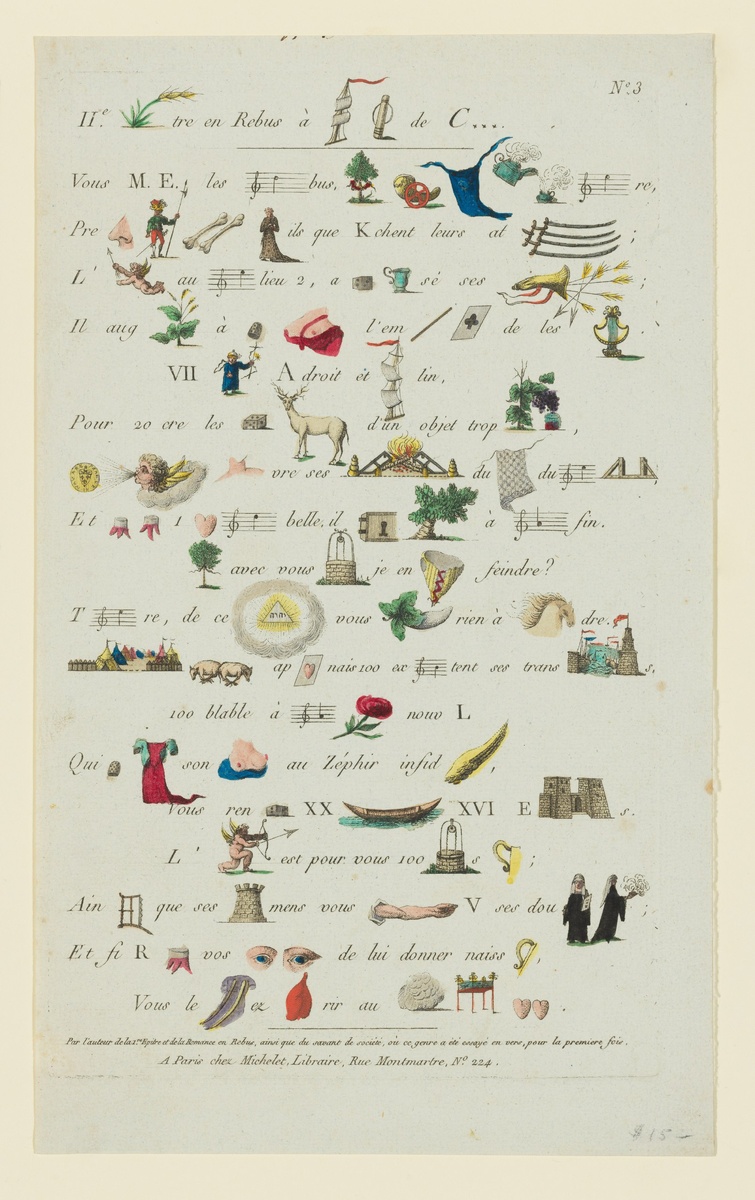 Nº 3
II.e tre en Rebus à de C....
Vous M. E. les bus, re,
Pre ils que K chent leurs at ;
L' au lieu 2, a sé ses ;
Il aug à l'em de les .
VII A droit et lin,
Pour 20 cre les d'un objet trop ,
vre ses du du ,
Et 1 belle, il à fin.
avec vous je en feindre?
T re, de ce vous rien à dre.
ap nais 100 ex tent ses trans s,
100 blable à nouv L
Qui son au Zéphir infid ,
Vous ren XX XVI E s.
L' est pour vous 100 s ;
Ain que ses mens vous V ses dou ;
Et si R vos de lui donner naiss ,
Vous le ez rir au .
Par l'auteur de la 1.re Epitre et de la Romance en Rebus, ainsi que du savant de société, où ce genre a été essayé en vers, pour la premiere fois.
A Paris chez Michelet, Libraire, Rue Montmartre, Nº 224.
$15-